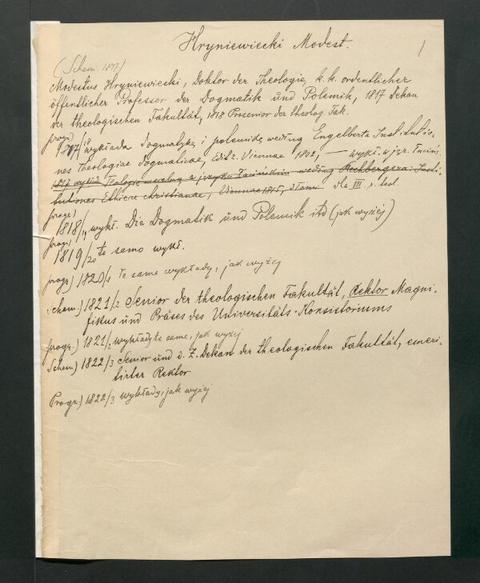 Hryniewiecki Modest.
1
(Schem. 1817)
Modestus Hryniewiecki, Doktor der Theologie, k. k. ordentlicher
öffentlicher Professor der Dogmatik und Polemik, 1817 Dekan
der theologischen Fakultät, 1818 Prosenior der theolog. Fak.
progr.)
wykłada dogmatykę i polemikę według Engelberta Institutio-
nes Theologiae dogmaticae, Wiennae wykł. w jęz.
1817 wykłada Teologię moralną z języku łacińskim według Rechbergera Insti-
tutiones Ethicae christianae, Viennae dla III r. teol.
progr.)
1818/19 wykł. Die Dogmatik und Polemik itd (jak wyżej)
progr.)
1819/20 to samo wykł.
progr.) 1820/1 te same wykłady, jak wyżej
Schem.) 1821/2 Senior der theologischen Fakultät, Rektor Magni-
fikus und Präses des Universitäts-Konsistoriums
progr.) 1821/2 wykłady te same, jak wyżej
Schem.) 1822/3 Senior und d. Z. Dekan der theologischen Fakultät, emeri-
tirter Rektor
Progr.) 1822/3 wykłady, jak wyżej